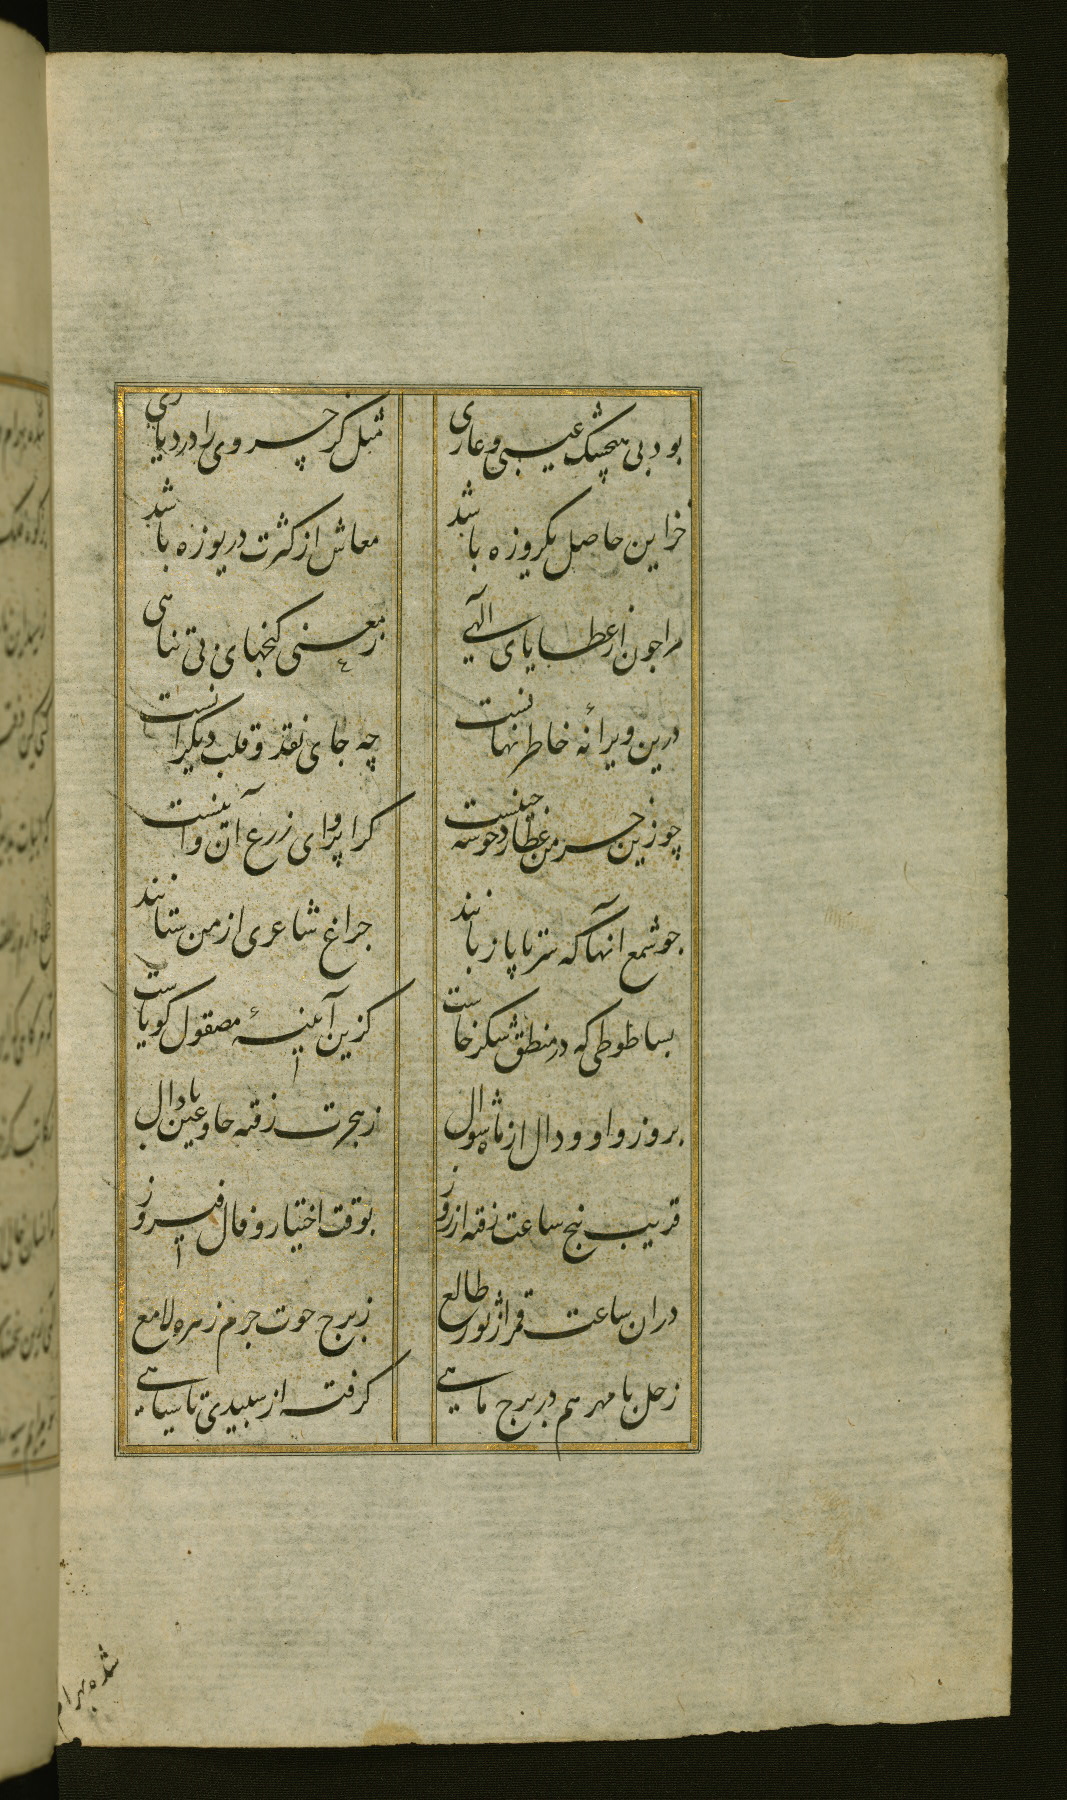 بود بی هیچ شک عیبی و عاری
مثل گر خسروی را در دیاری
خزاین حاصل یکروزه باشد
معاش از کثرت دریوزه باشد
مرا چون از عطایای الهی
ز معنی گنجهای بی تناهی
درین ویرانهٔ خاطر نهانست
چه جای نقد و قلب دیگرانست
چو زین خرمن عطارد خوشه چینست
کرا پروای زرع آن و اینست
چو شمع آنها که سر تا پا زبانند
چراغ شاعری از من ستانند
بسا طوطی که در منطق شکرخاست
کزین آیینهٔ مصقول گویاست
بروز واو و دال از ماه شوال
ز هجرت رفته حا و عین با دال
قریب پنج ساعت رفته از روز
بوقت اختیار و فال فیروز
دران ساعت قمر از ثور طالع
ز برج حوت جرم زهره لامع
زحل با مهر هم در برج ماهی
گرفته از سپیدی تا سیاهی
شده بهرام